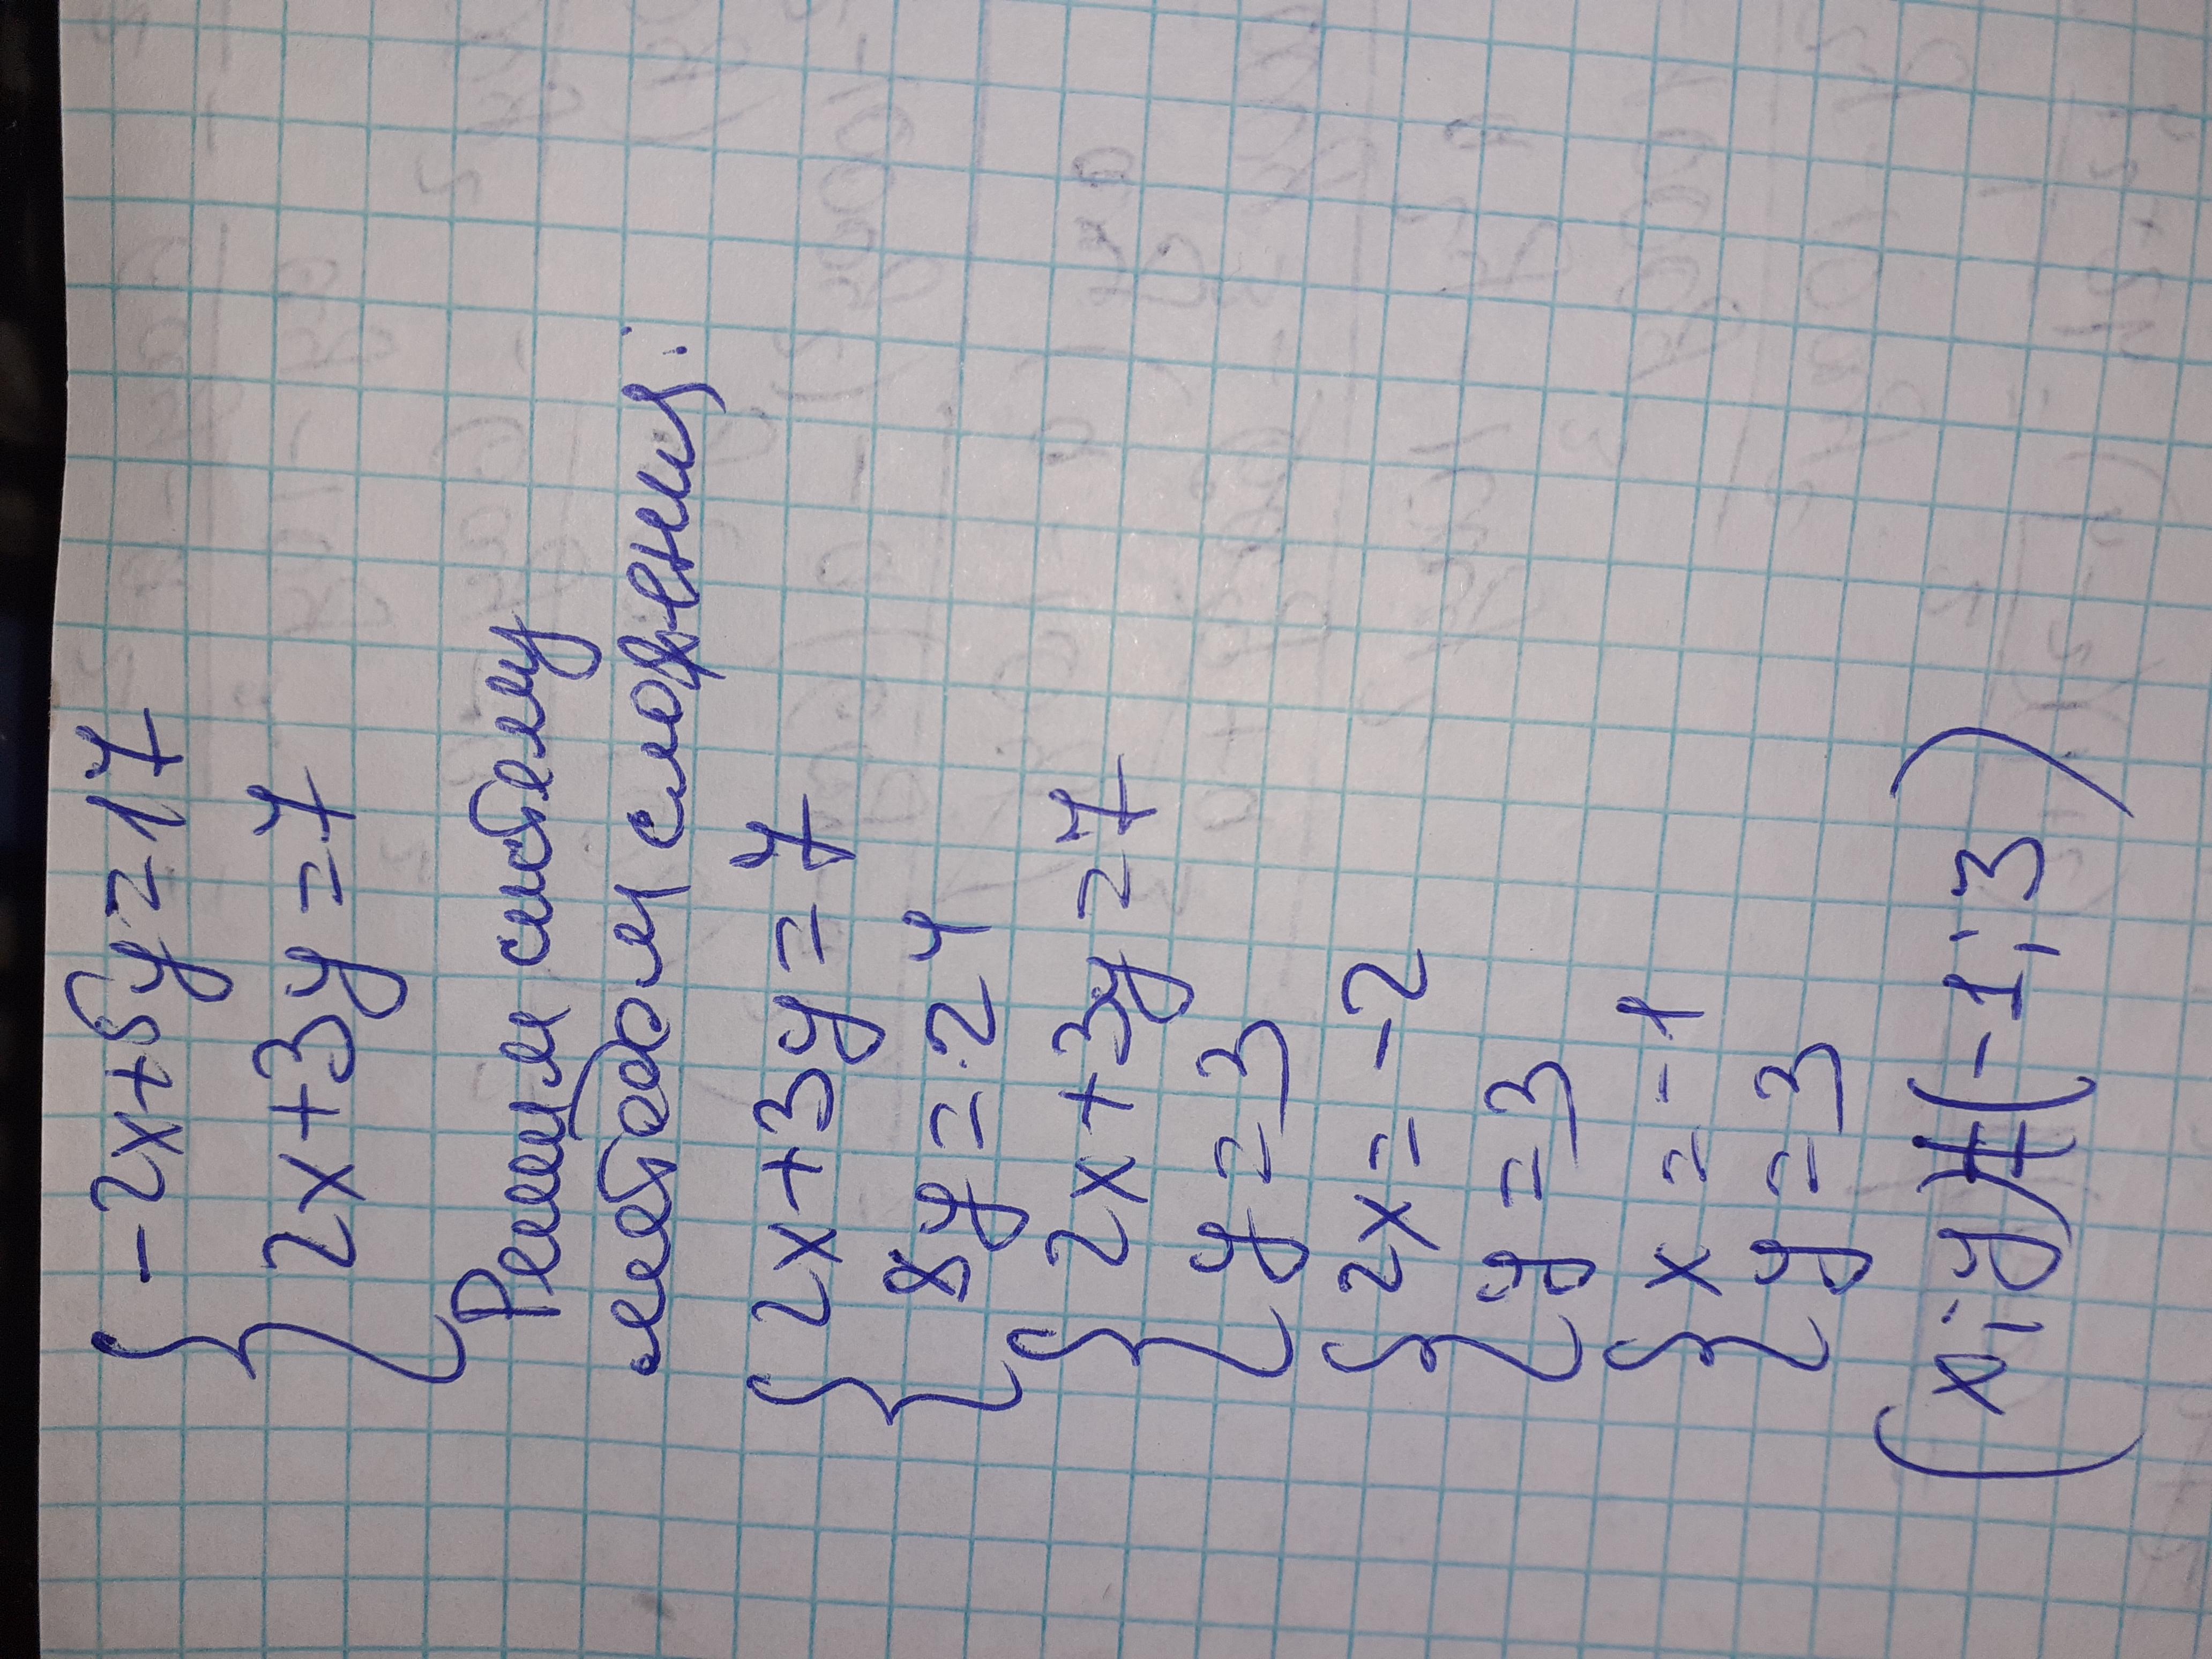 -2x+5y=17
2x+3y=7
Решим систему
методом сложения:
2x+3y=7
8y=24
2x+3y=7
y=3
2x=-2
y=3
x=-1
y=3
(x;y)=(-1;3)